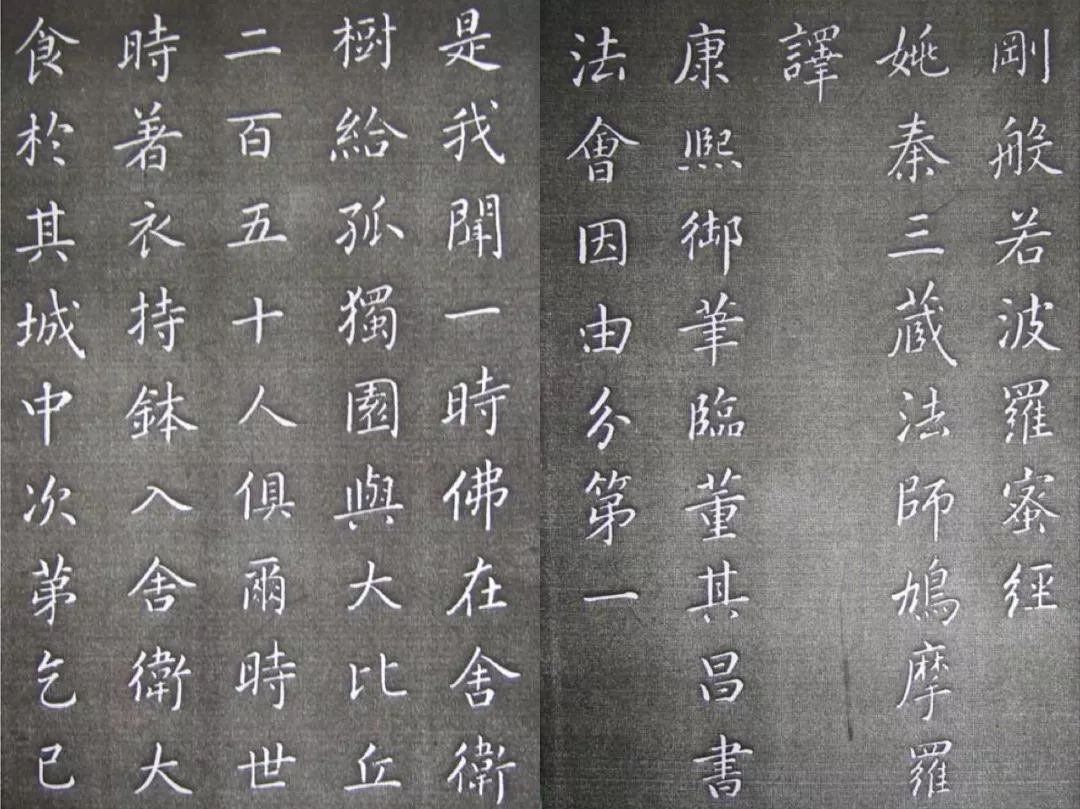 剛般若波羅蜜經
姚秦三藏法師鳩摩羅
譯
康熙御筆臨董其昌書
法會因由分第一
是我聞一時佛在舍衛
樹給孤獨園與大比丘
二百五十人俱爾時世
時著衣持鉢入舍衛大
食於其城中次第乞已